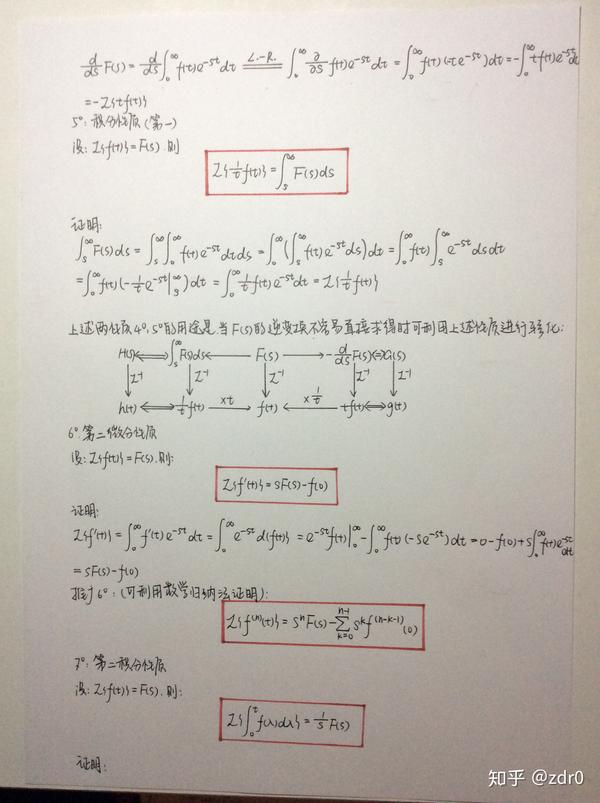 d/ds F(s) = d/ds ∫₀^∞ f(t)e^{-st}dt ==L.-R.== ∫₀^∞ ∂/∂s f(t)e^{-st}dt = ∫₀^∞ f(t)(-te^{-st})dt = -∫₀^∞ tf(t)e^{-st}dt
= -ℒ{tf(t)}
5°: 积分性质(第一)
设: ℒ{f(t)} = F(s). 则
ℒ{1/t f(t)} = ∫ₛ^∞ F(s)ds
证明:
∫ₛ^∞ F(s)ds = ∫ₛ^∞ ∫₀^∞ f(t)e^{-st}dtds = ∫₀^∞ (∫ₛ^∞ f(t)e^{-st}ds)dt = ∫₀^∞ f(t)∫ₛ^∞ e^{-st}dsdt
= ∫₀^∞ f(t)(-1/t e^{-st}|ₛ^∞)dt = ∫₀^∞ 1/t f(t)e^{-st}dt = ℒ{1/t f(t)}
上述两性质4°,5°的用途是,当F(s)的逆变换不容易直接求得时可利用上述性质进行转化:
H(s) ⟺ ∫ₛ^∞ F(s)ds ← F(s) → -d/ds F(s) ⟺ G(s)
↓ℒ⁻¹ ↓ℒ⁻¹ ↓ℒ⁻¹ ↓ℒ⁻¹ ↓ℒ⁻¹
h(t) ⟺ 1/t f(t) —×t→ f(t) ←×1/t— tf(t) ⟺ g(t)
6°: 第二微分性质
设: ℒ{f(t)} = F(s). 则:
ℒ{f'(t)} = sF(s) - f(0)
证明:
ℒ{f'(t)} = ∫₀^∞ f'(t)e^{-st}dt = ∫₀^∞ e^{-st}d(f(t)) = e^{-st}f(t)|₀^∞ - ∫₀^∞ f(t)(-se^{-st})dt = 0 - f(0) + s∫₀^∞ f(t)e^{-st}dt
= sF(s) - f(0)
推广6°: (可利用数学归纳法证明):
ℒ{f^{(n)}(t)} = sⁿF(s) - ∑_{k=0}^{n-1} s^k f^{(n-k-1)}(0)
7°: 第二积分性质
设: ℒ{f(t)} = F(s). 则:
ℒ{∫₀^t f(λ)dλ} = 1/s F(s)
证明:
知乎 @zdr0